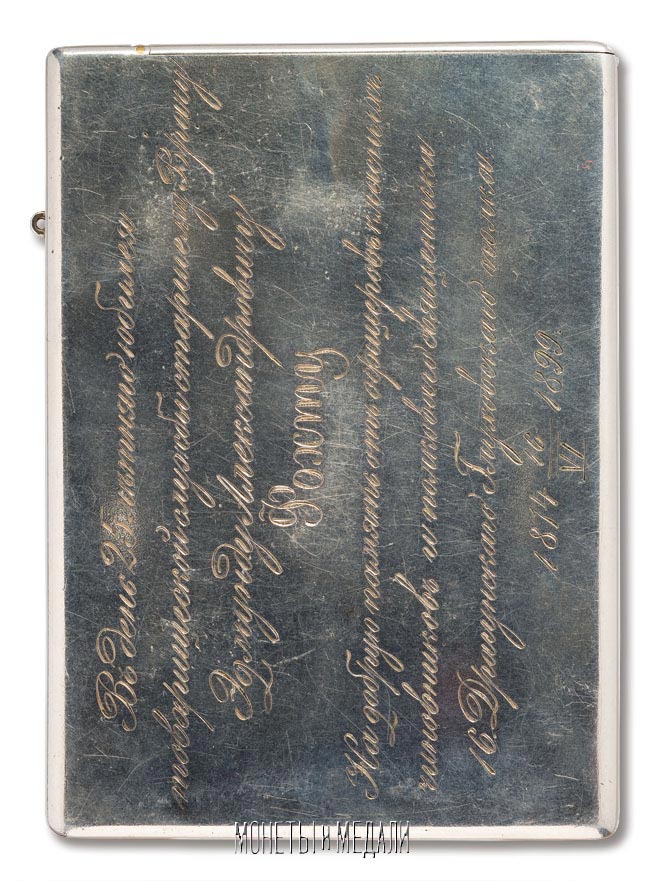 Въ день 25 лѣтняго юбилея
товарищеской службы старшему врачу
Эдмунду Александровичу
Фохту
На добрую память отъ офицеровъ классныхъ
чиновниковъ и полковаго священника
16. Драгунскаго Глуховскаго полка
1874 16/VI 1899.
МОНЕТЫ И МЕДАЛИ